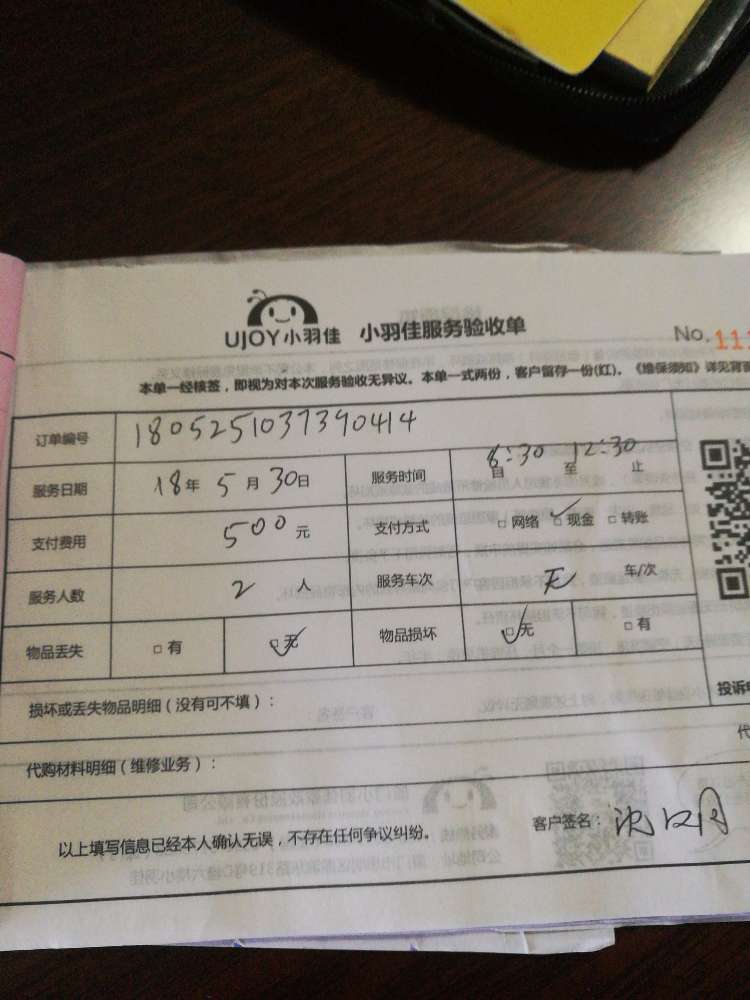 UJOY小羽佳 小羽佳服务验收单
No.111
本单一经核签，即视为对本次服务验收无异议。本单一式两份，客户留存一份(红)。《维保须知》详见背
订单编号 1805251037390414
服务日期 18年 5月 30日 服务时间 自 8:30 至 12:30 止
支付费用 500元 支付方式 □网络 ☑现金 □转账
服务人数 2人 服务车次 无 车/次
物品丢失 □有 ☑无 物品损坏 ☑无 □有
损坏或丢失物品明细（没有可不填）：
投诉
代购材料明细（维修业务）：
代
以上填写信息已经本人确认无误，不存在任何争议纠纷。 客户签名：